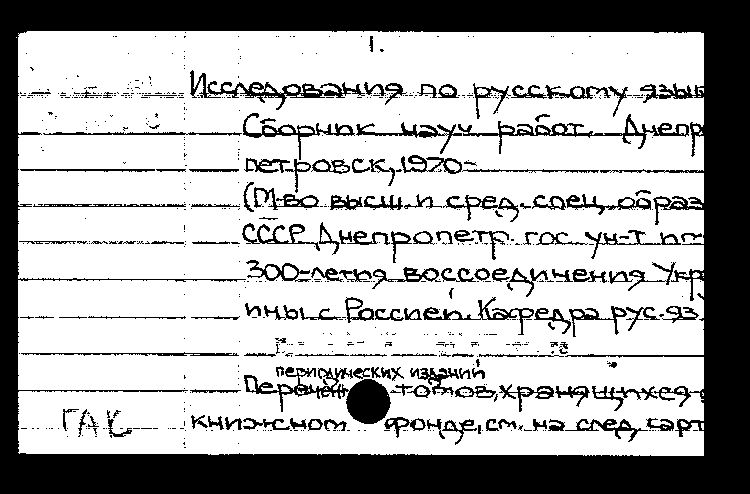 1.
Исследования по русскому язык
Сборник науч работ. Днепро
петровск, 1970-
(М-во высш. и сред. спец. образ
СССР Днепропетр. гос. ун-т
300-летия воссоединения Укра
ины с Россией. Кафедра рус. яз.
периодических изданий
Перечень томов, хранящихся в
ГАК книжном фонде, см. на след. карт